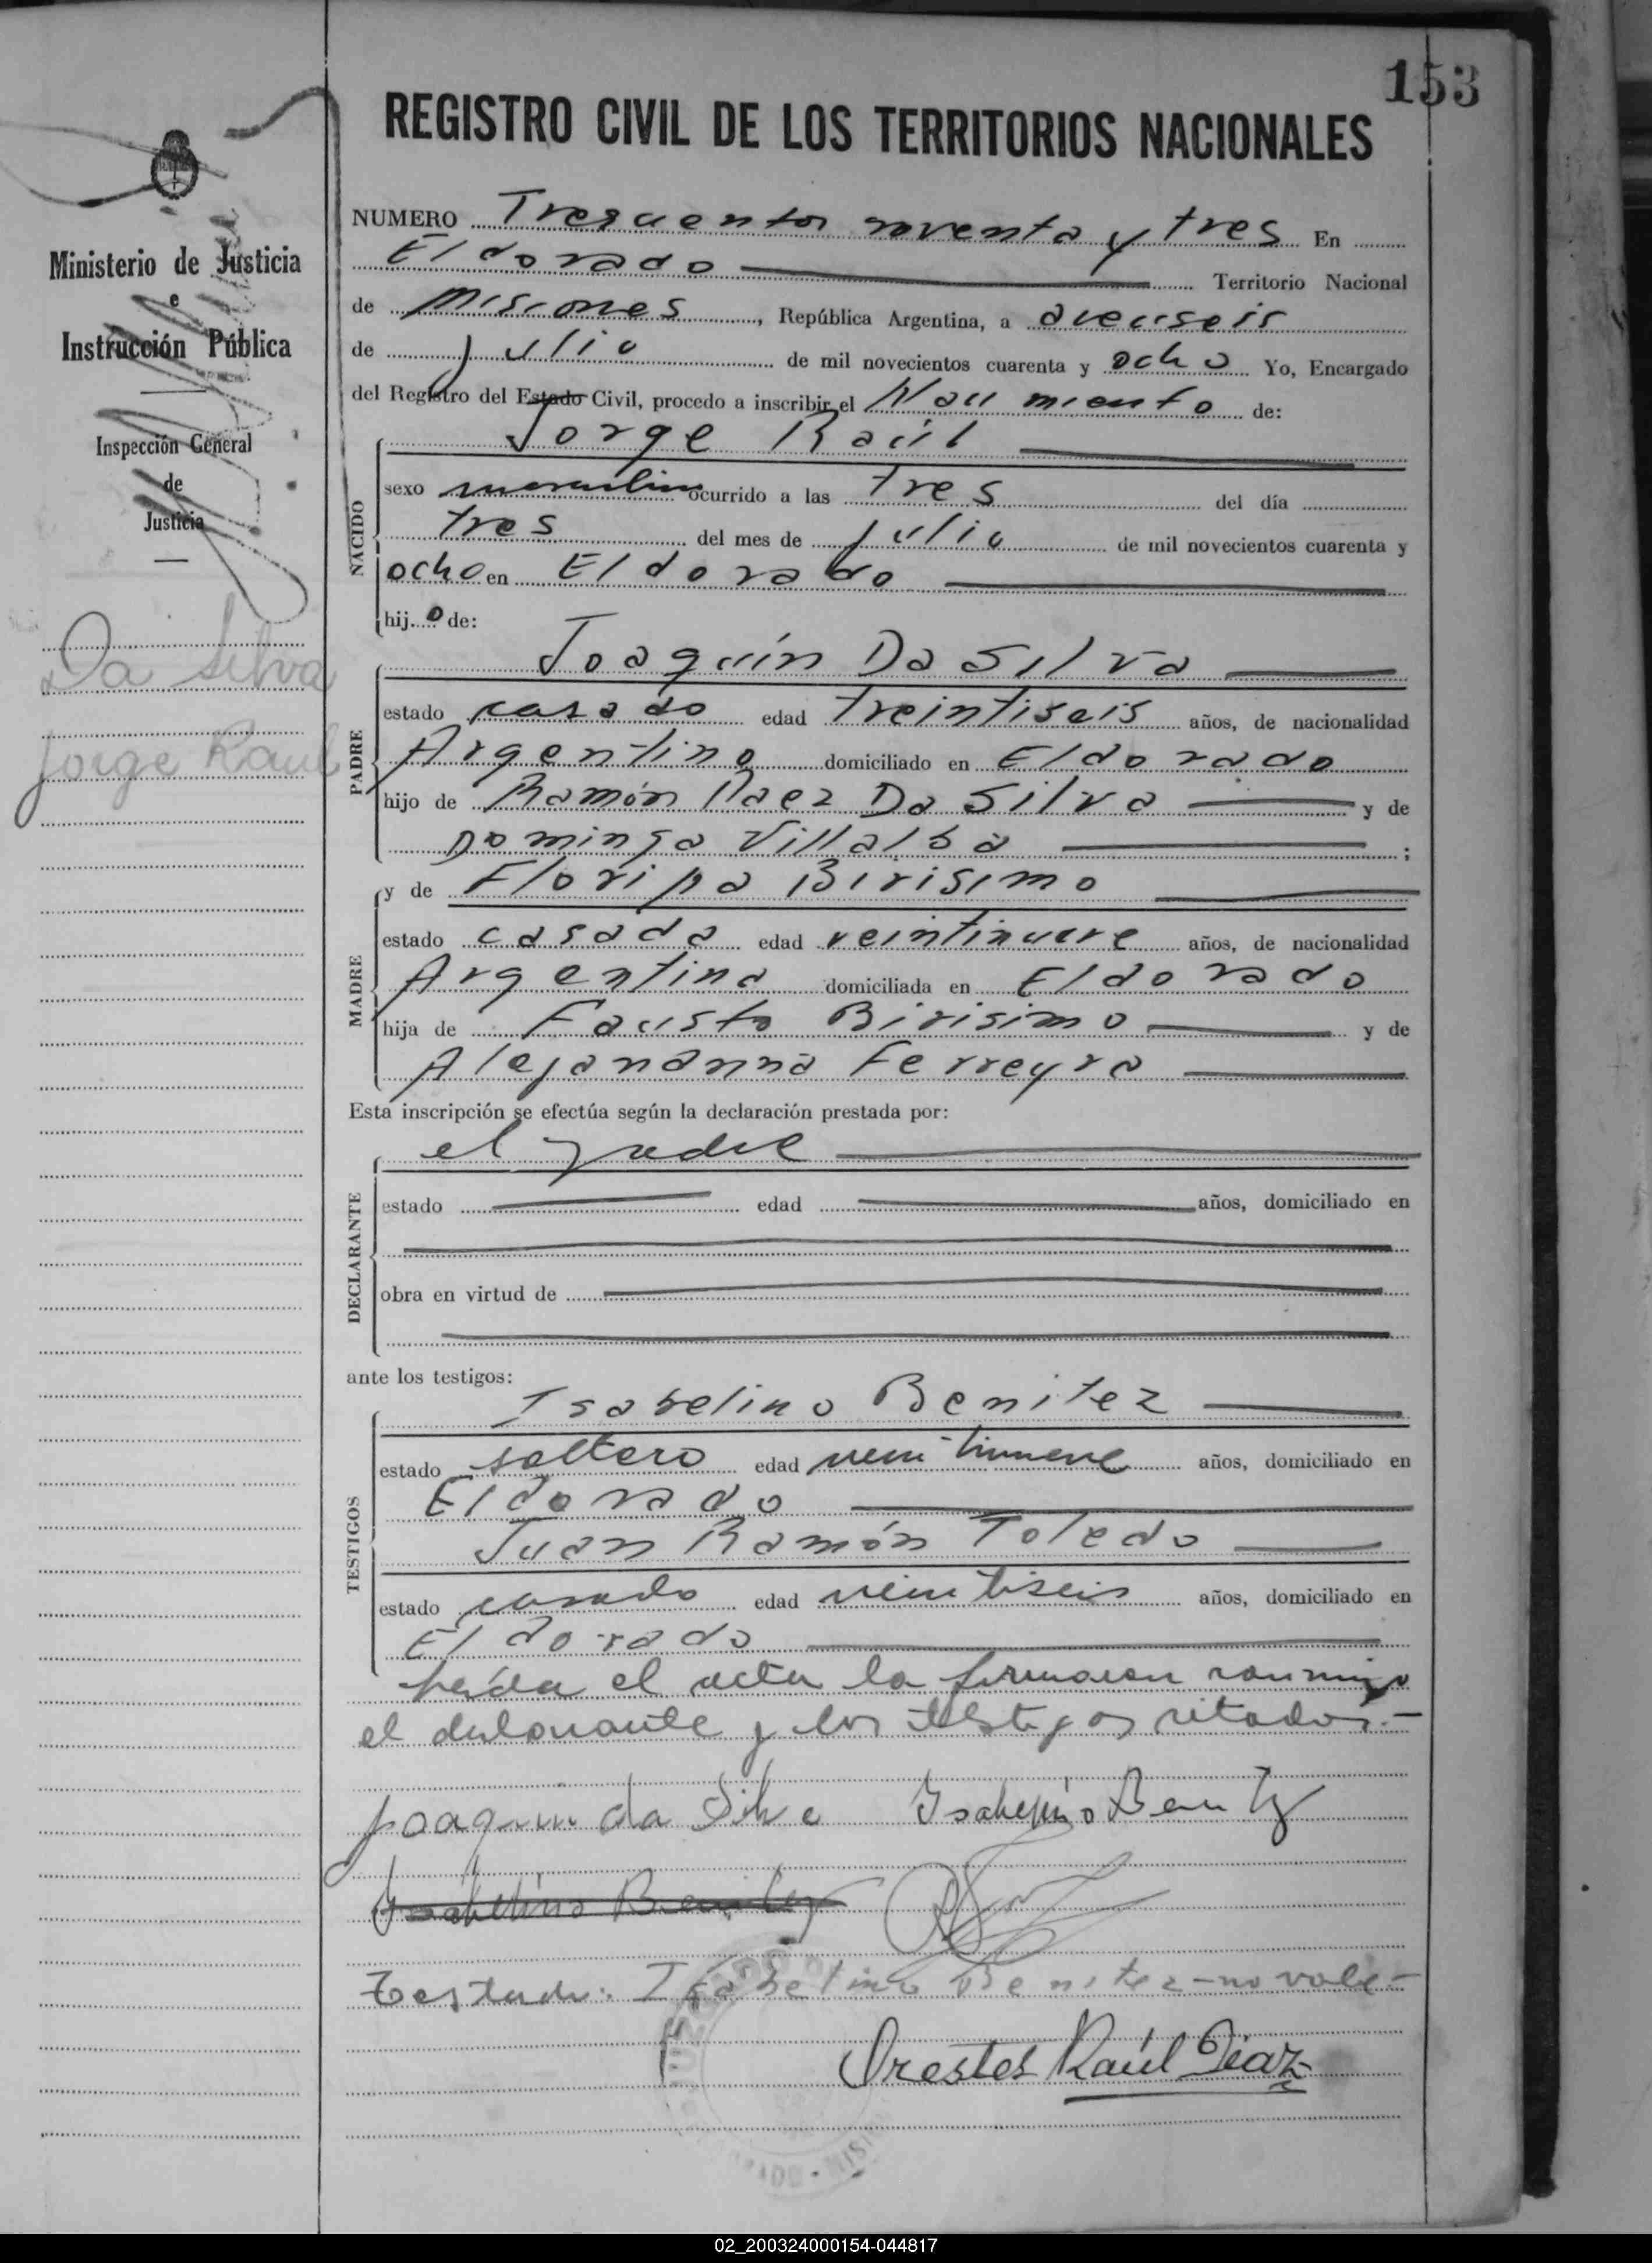 153
REGISTRO CIVIL DE LOS TERRITORIOS NACIONALES
Ministerio de Justicia
e
Instrucción Pública
Inspección General
de
Justicia
Da Silva
Jorge Raul
NUMERO Trescientos noventa y tres En
Eldorado Territorio Nacional
de Misiones, República Argentina, a dieciseis
de julio de mil novecientos cuarenta y ocho Yo, Encargado
del Registro del Estado Civil, procedo a inscribir el Nacimiento de:
Jorge Raúl
NACIDO
sexo masculino ocurrido a las tres del día
tres del mes de julio de mil novecientos cuarenta y
ocho en Eldorado
hijo de:
PADRE
Joaquín Da Silva
estado casado edad treintiseis años, de nacionalidad
Argentino domiciliado en Eldorado
hijo de Ramón Paez Da Silva y de
Dominga Villalba ;
MADRE
y de Floripa Birisimo
estado casada edad veintinueve años, de nacionalidad
Argentina domiciliada en Eldorado
hija de Fausto Birisimo y de
Ferreyra
Esta inscripción se efectúa según la declaración prestada por:
DECLARANTE
el padre
estado edad años, domiciliado en
obra en virtud de
ante los testigos:
TESTIGOS
Isabelino Benitez
estado soltero edad veintinueve años, domiciliado en
Eldorado
Juan Ramón Toledo
estado casado edad veintiseis años, domiciliado en
Eldorado
Leída el acta la firmaron conmigo
el declarante y los testigos citados.-
Joaquin da Silva Isabelino Benitez
Isabelino Benitez
Testado: Isabelino Benitez-no vale-
Orestes Raúl Diaz
02_200324000154-044817